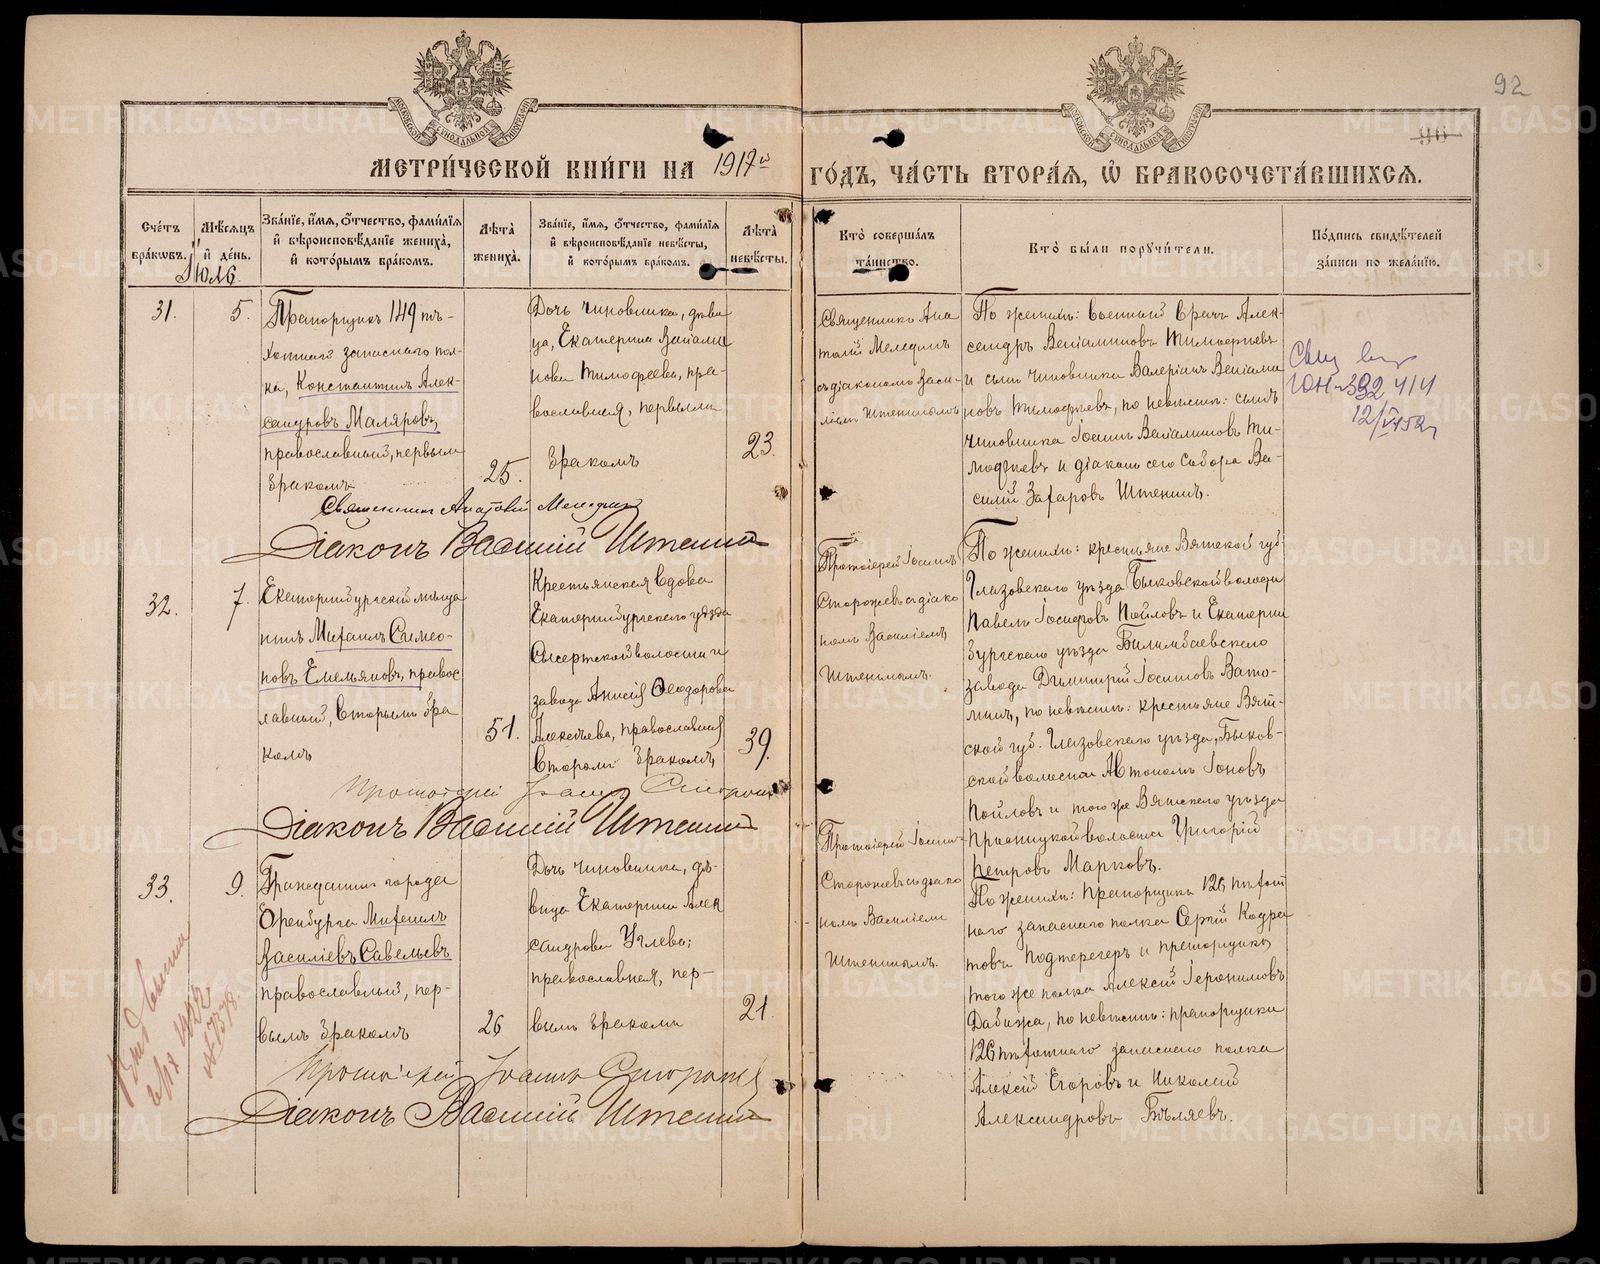 92
90
МЕТРИ́ЧЕСКОЙ КНИ́ГИ НА 1917й ГО́ДЪ, ЧА́СТЬ ВТОРА́Я, Ѽ БРАКОСОЧЕТА́ВШИХСЯ.
Сче́тъ бра́кѡвъ.
Мѣ́сяцъ и́ де́нь.
Зва́нїе, и́мя, ѻ́тчество, фами́лїя и́ вѣроисповѣ́данїе жениха̀, и́ кото́рымъ бра́комъ.
Лѣ́та̀ жениха̀.
Зва́нїе, и́мя, ѻ́тчество, фами́лїя и́ вѣроисповѣ́данїе невѣ́сты, и́ кото́рымъ бра́комъ.
Лѣ́та̀ невѣ́сты.
Кто̀ соверша́лъ та́инство.
Кто̀ бы́ли пору́чители.
По́дпись свидѣ́телей за́писи по жела́нїю.
Іюль
31.
5.
Прапорщикъ 149 пѣ-
хотнаго запаснаго пол-
ка, Константинъ Алек-
сандровъ Маляровъ,
православный, первымъ
бракомъ
25.
Дочь чиновника, дѣви
ца, Екатерина Веніами
нова Тимофеева, пра-
вославная, первымъ
бракомъ
23.
Священникъ Ана
толій Мелединъ
съ діакономъ Васи-
ліемъ Штенинымъ
По женихѣ: военный врачъ Алек-
сандръ Веніаминовъ Тимофеевъ
и сынъ чиновника Валеріанъ Веніами
новъ Тимофеевъ, по невѣстѣ: сынъ
чиновника Іоаннъ Веніаминовъ Ти-
мофеевъ и діаконъ сего Собора Ва-
силій Захаровъ Штенинъ.
ЮН-392414
Священникъ Анатолій Меледин
Діаконъ Василій Штенинъ
32.
7.
Екатеринбургскій мѣща
нинъ Михаилъ Симео-
новъ Емельяновъ, правос
лавный, вторымъ бра
комъ
51.
Крестьянская вдова
Екатеринбургскаго уѣзда
Сысертской волости и
завода Анисія Ѳеодорова
Алексѣева, православная
вторымъ бракомъ,
39.
Протоіерей Іоаннъ
Сторожевъ съ діако
номъ Василіемъ
Штенинымъ.
По женихѣ: крестьяне Вятской губ.
Глазовскаго уѣзда Быковской волости
Павелъ Іосифовъ Пойловъ и Екатерин
бургскаго уѣзда Билимбаевскаго
завода Димитрій Іосифовъ Вато-
линъ, по невѣстѣ: крестьяне Вят-
ской губ. Глазовскаго уѣзда, Быков-
ской волости Автономъ Іоновъ
Пойловъ и того же Вятскаго уѣзда
волости Григорій
Петровъ Марковъ.
Протоіерей Іоаннъ Сторожев
Діаконъ Василій Штенинъ
33.
9.
Гражданинъ города
Оренбурга Михаилъ
Василіевъ Савельевъ
православный, пер-
вымъ бракомъ
26
Дочь чиновника, дѣ-
вица Екатерина Алек
сандрова Углева;
православная, пер-
вымъ бракомъ
21.
Протоіерей Іоаннъ
Сторожевъ съ діако
номъ Василіемъ
Штенинымъ.
По женихѣ: прапорщикъ 126 пѣхот
наго запаснаго полка Сергій Кодра
товъ Подтерегеръ и прапорщикъ
того же полка Алексій Іеронимовъ
Дабижа, по невѣстѣ: прапорщики
126 пѣхотнаго запаснаго полка
Алексій Егоровъ и Николай
Александровъ Бѣляевъ.
Протоіерей Іоаннъ Сторожев
Діаконъ Василій Штенинъ
METRIKI.GASO-URAL.RU